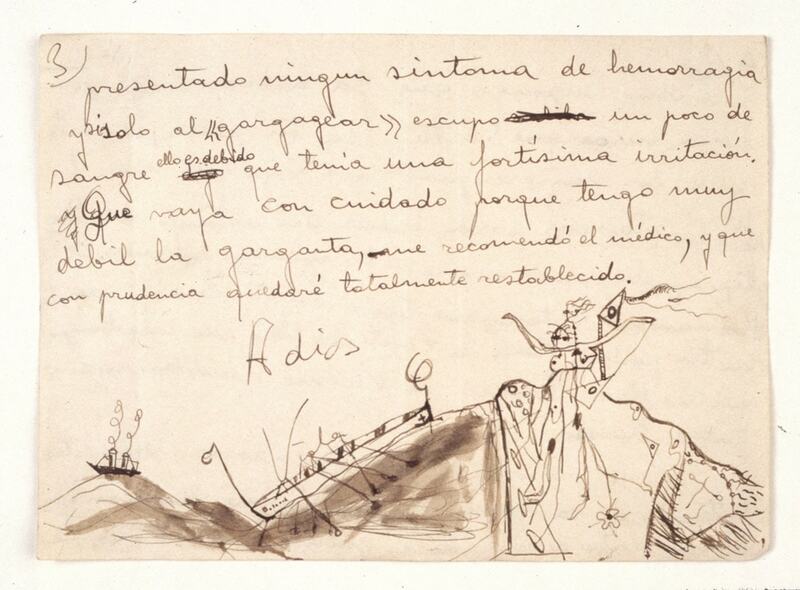 3)
presentado ningun sintoma de hemorragia
y si solo al «gargagear» escupo un poco de
sangre ello es debido que tenía una fortísima irritación.
y Que vaya con cuidado porque tengo muy
debil la garganta, me recomendó el médico, y que
con prudencia quedaré totalmente restablecido.
Adios
Viola